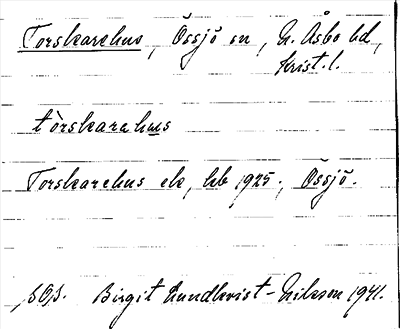 Torskarehus, Össjö sn, N. Åsbo hd,
Krist. l.
tòrskarehus
Torskarehus ek, kb 1925, Össjö.
Birgit Lundkvist-Erikson 1941.